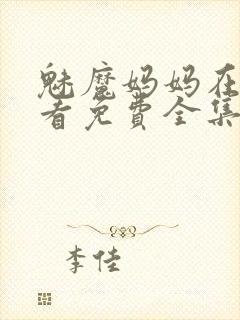 魅魔妈妈在
看免费全集
李佳